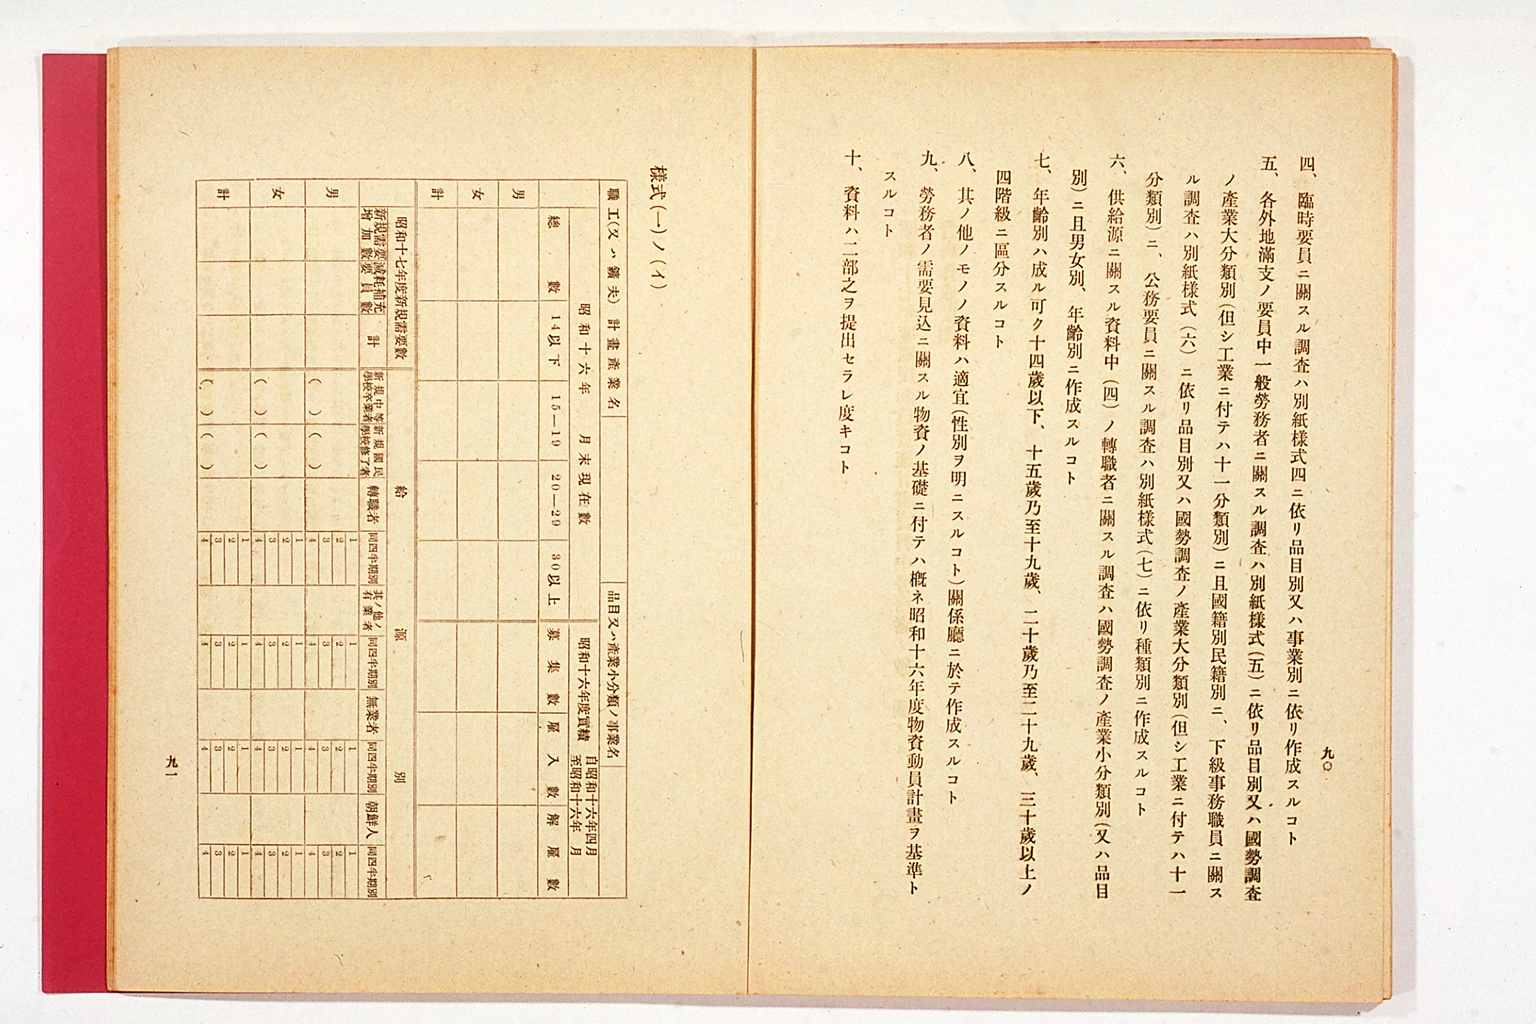 九〇
四、臨時要員ニ關スル調査ハ別紙樣式四ニ依リ品目別又ハ事業別ニ依リ作成スルコト
五、各外地滿支ノ要員中一般勞務者ニ關スル調査ハ別紙樣式(五)ニ依リ品目別又ハ國勢調査
ノ產業大分類別(但シ工業ニ付テハ十一分類別)ニ且國籍別民籍別ニ、下級事務職員ニ關ス
ル調査ハ別紙樣式(六)ニ依リ品目別又ハ國勢調査ノ產業大分類別(但シ工業ニ付テハ十一
分類別)ニ、公務要員ニ關スル調査ハ別紙樣式(七)ニ依リ種類別ニ作成スルコト
六、供給源ニ關スル資料中(四)ノ轉職者ニ關スル調査ハ國勢調査ノ產業小分類別(又ハ品目
別)ニ且男女別、年齡別ニ作成スルコト
七、年齡別ハ成ル可ク十四歲以下、十五歲乃至十九歲、二十歲乃至二十九歲、三十歲以上ノ
四階級ニ區分スルコト
八、其ノ他ノモノノ資料ハ適宜(性別ヲ明ニスルコト)關係廳ニ於テ作成スルコト
九、勞務者ノ需要見込ニ關スル物資ノ基礎ニ付テハ槪ネ昭和十六年度物資動員計畫ヲ基準ト
スルコト
十、資料ハ二部之ヲ提出セラレ度キコト
樣式(一)ノ(イ)
職工(又ハ鑛夫)計畫產業名
品目又ハ產業小分類ノ事業名
昭和十六年 月末現在數
昭和十六年度實績 自昭和十六年四月
至昭和十六年 月
總數 14以下 15—19 20—29 30以上 募集數 雇入數 解雇數
男
女
計
昭和十七年度新規需要數
給源別
新規需要增加數 減耗補充要員數 計 新規中等學校卒業者 新規國民學校修了者 轉職者 同四半期別 其ノ他ノ有業者 同四半期別 無業者 同四半期別 朝鮮人 同四半期別
男 ( ) ( ) 1 2 3 4 1 2 3 4 1 2 3 4 1 2 3 4
女 ( ) ( ) 1 2 3 4 1 2 3 4 1 2 3 4 1 2 3 4
計 ( ) ( ) 1 2 3 4 1 2 3 4 1 2 3 4 1 2 3 4
九一